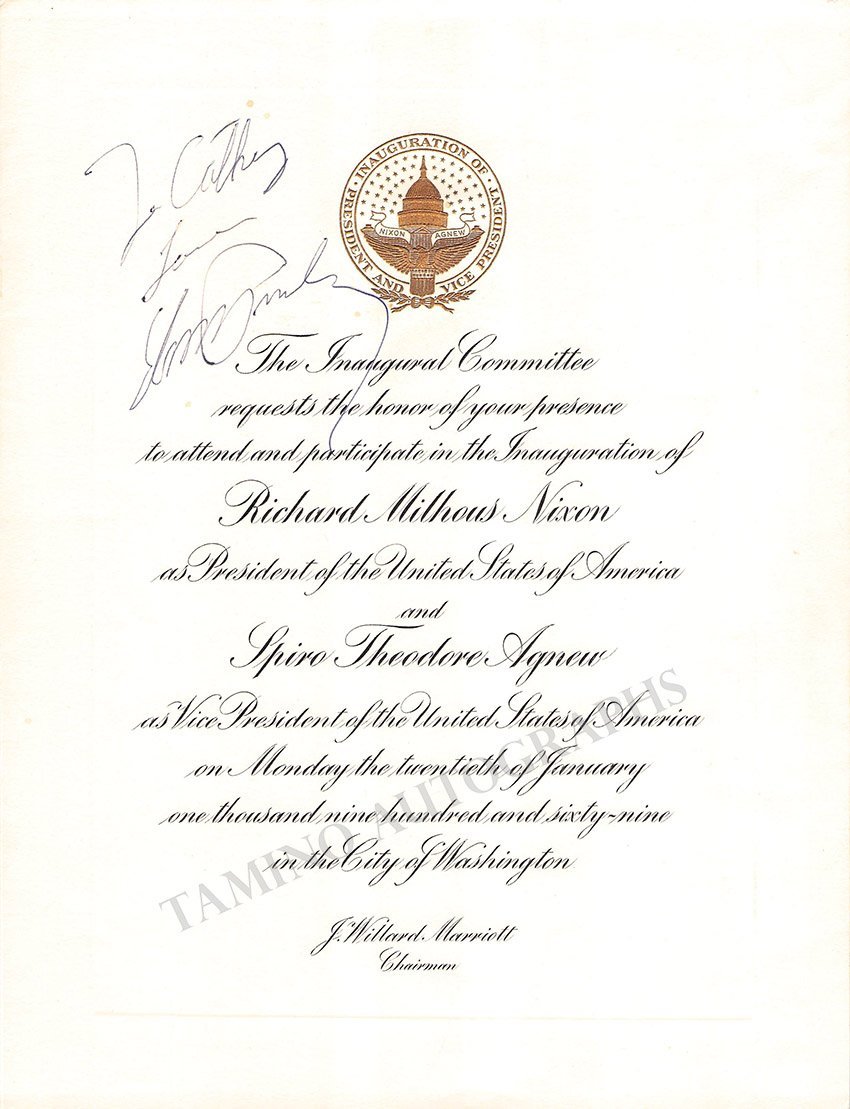 INAUGURATION OF · PRESIDENT AND VICE PRESIDENT ·
NIXON AGNEW
To Cathy
Love
The Inaugural Committee
requests the honor of your presence
to attend and participate in the Inauguration of
Richard Milhous Nixon
as President of the United States of America
and
Spiro Theodore Agnew
as Vice President of the United States of America
on Monday the twentieth of January
one thousand nine hundred and sixty~nine
in the City of Washington
J. Willard Marriott
Chairman
TAMINO AUTOGRAPHS